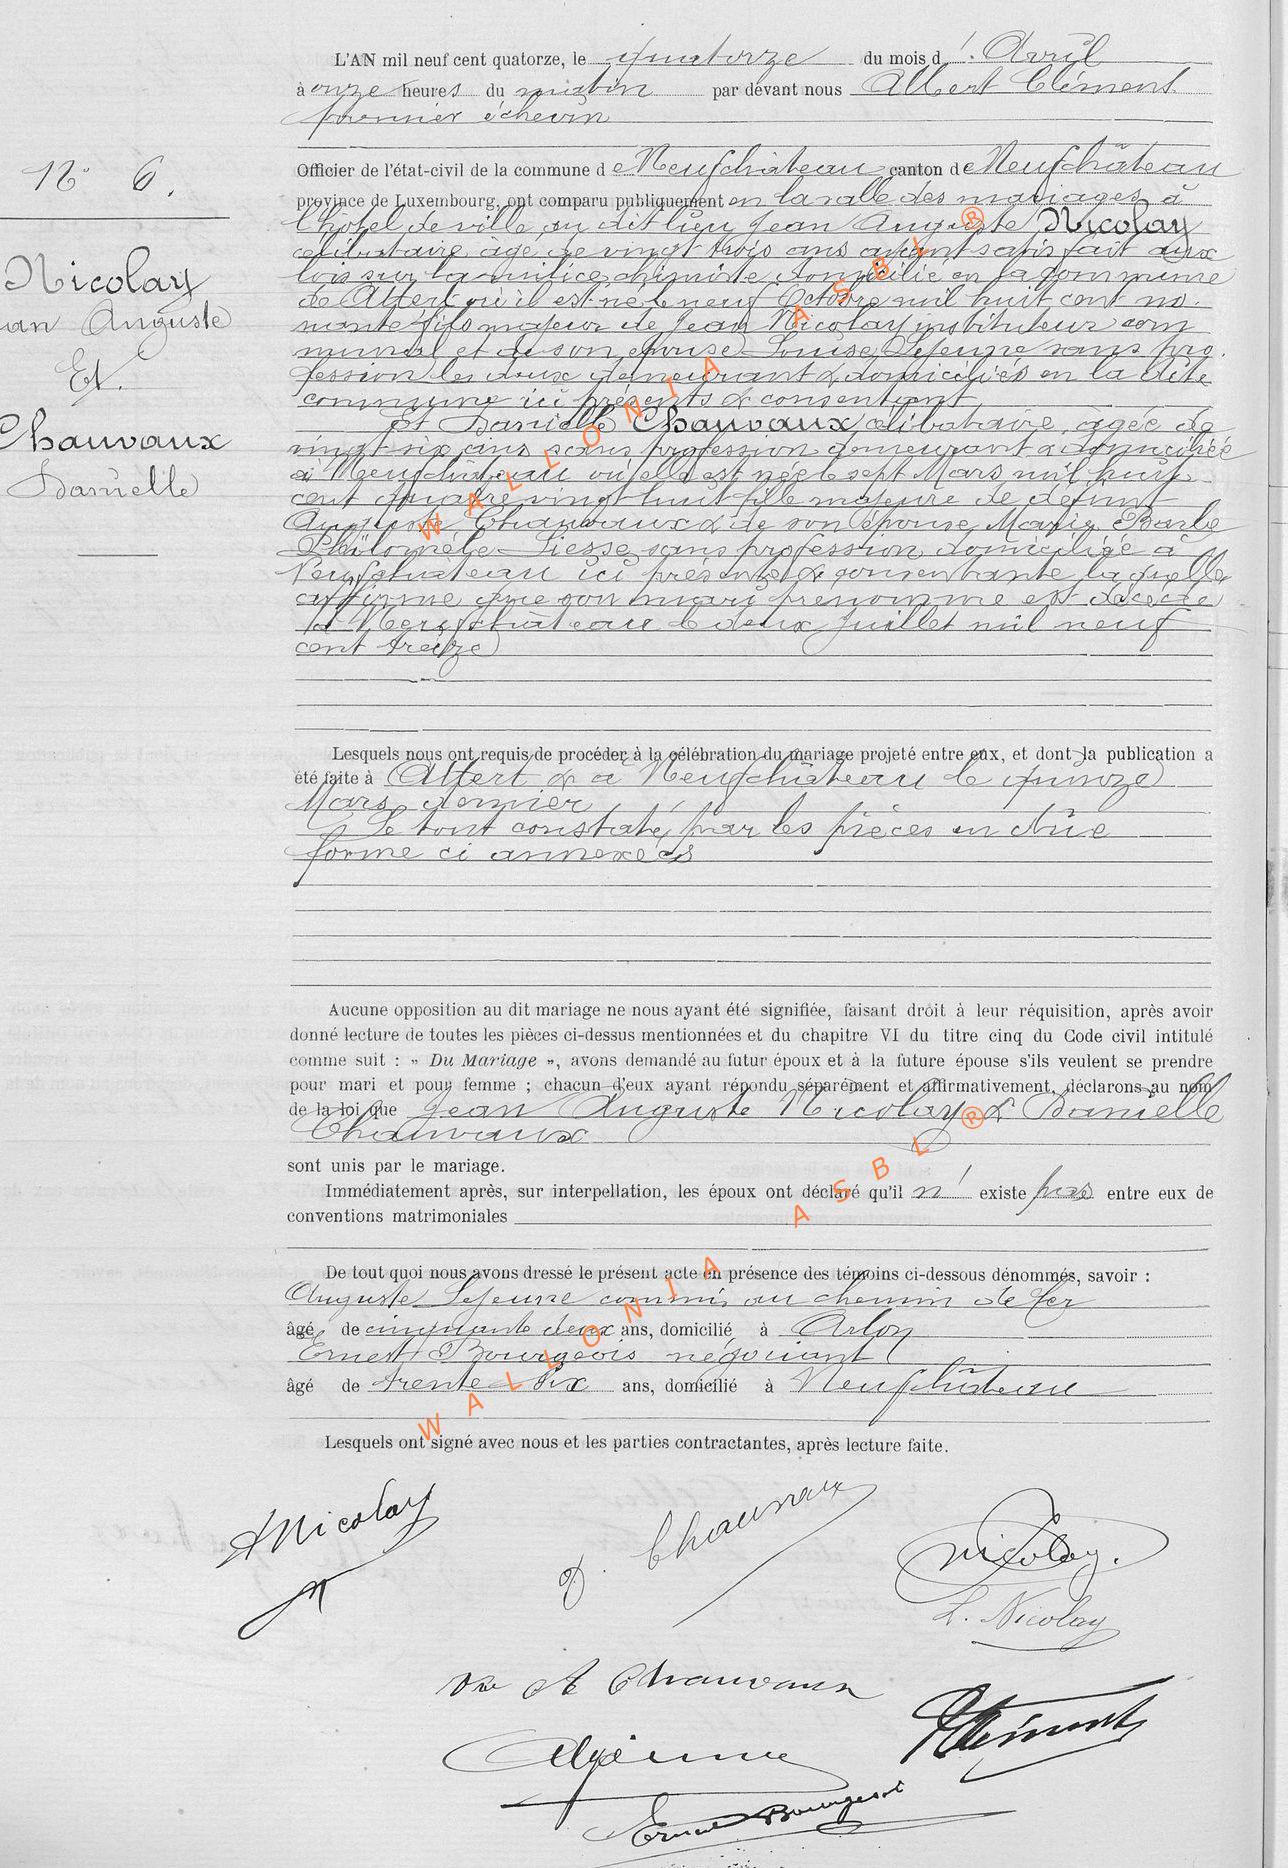 L'AN mil neuf cent quatorze, le quatorze du mois d' Avril
à onze heures du matin par devant nous Albert Clément
premier échevin
N° 6.
Nicolay
Auguste
Et
Chauvaux
Danielle
Officier de l'état-civil de la commune de Neufchâteau canton de Neufchâteau
province de Luxembourg, ont comparu publiquement en la salle des mariages à
l'hôtel de ville au dit lieu Jean Auguste Nicolay
célibataire âgé de vingt trois ans ayant satisfait aux
lois sur la milice chimiste domicilié en la commune
de Attert où il est né le neuf Octobre mil huit cent no-
nante fils majeur de Jean Nicolay instituteur com
munal et de son épouse Louise Lejeune sans pro-
fession les deux demeurant & domiciliés en la dite
commune ici présents & consentant
Et Danielle Chauvaux célibataire âgée de
vingt six ans sans profession demeurant & domiciliée
à Neufchâteau où elle est née le sept Mars mil huit
cent quatre vingt huit fille majeure de défunt
Auguste Chauvaux & de son épouse Marie Barbe
Philomèle Liesse sans profession domiciliée à
Neufchâteau ici présente & consentante laquelle
affirme que son mari prénommé est décédé
à Neufchâteau le deux Juillet mil neuf
cent treize
Lesquels nous ont requis de procéder à la célébration du mariage projeté entre eux, et dont la publication a
été faite à Attert & à Neufchâteau le quinze
Mars dernier
Le tout constaté par les pièces en dûe
forme ci annexées
Aucune opposition au dit mariage ne nous ayant été signifiée, faisant droit à leur réquisition, après avoir
donné lecture de toutes les pièces ci-dessus mentionnées et du chapitre VI du titre cinq du Code civil intitulé
comme suit : « Du Mariage », avons demandé au futur époux et à la future épouse s'ils veulent se prendre
pour mari et pour femme ; chacun d'eux ayant répondu séparément et affirmativement, déclarons au nom
de la loi que Jean Auguste Nicolay & Danielle
Chauvaux
sont unis par le mariage.
Immédiatement après, sur interpellation, les époux ont déclaré qu'il n' existe pas entre eux de
conventions matrimoniales
De tout quoi nous avons dressé le présent acte en présence des témoins ci-dessous dénommés, savoir :
Auguste Lejeune commis au chemin de fer
âgé de cinquante deux ans, domicilié à Arlon
Ernest Bourgeois négociant
âgé de trente six ans, domicilié à Neufchâteau
Lesquels ont signé avec nous et les parties contractantes, après lecture faite.
Nicolay
D. Chauvaux
Nicolay.
L. Nicolay
Vve A Chauvaux
Lejeune
Clément
Ernest Bourgeois
WALLONIA ASBL ®
WALLONIA ASBL ®